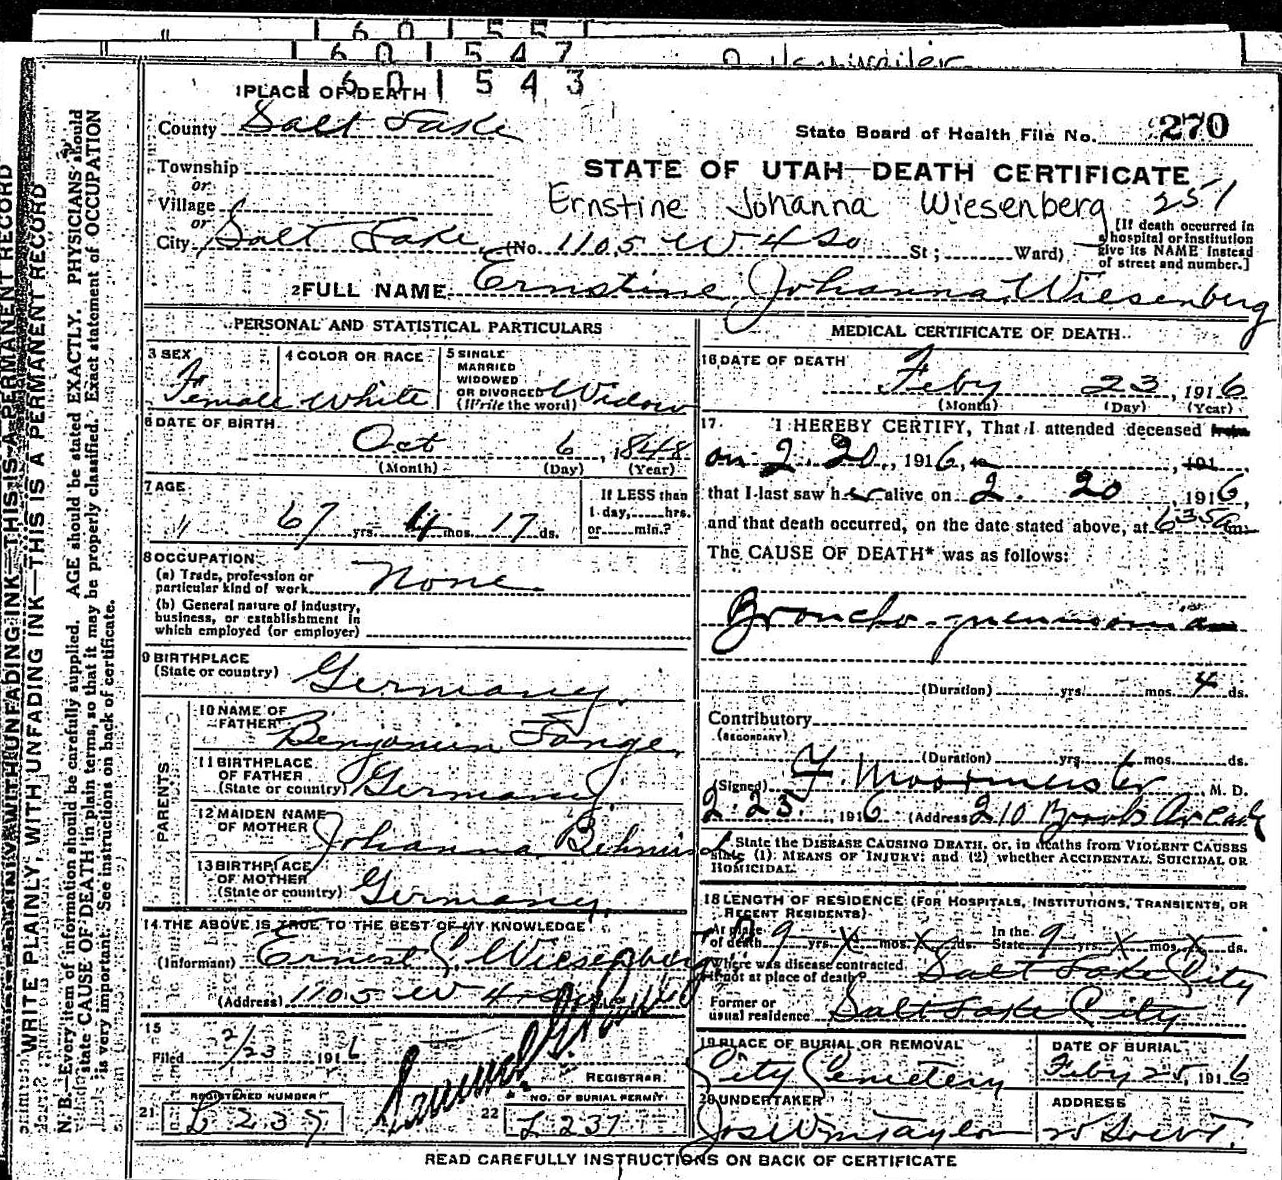 1 6 0 1 5 5
1 6 0 1 5 4 7
1 6 0 1 5 4 3
1 PLACE OF DEATH
County Salt Lake
State Board of Health File No. 270
Township
or
Village
or
City Salt Lake (No. 1105 W 4 So St; Ward)
STATE OF UTAH—DEATH CERTIFICATE
Ernstine Johanna Wiesenberg 251
[If death occurred in
a hospital or institution
give its NAME instead
of street and number.]
2 FULL NAME Ernstine Johanna Wiesenberg
PERSONAL AND STATISTICAL PARTICULARS
3 SEX Female
4 COLOR OR RACE White
5 SINGLE
MARRIED
WIDOWED
OR DIVORCED
(Write the word) Widow
6 DATE OF BIRTH
Oct 6, 1848
(Month) (Day) (Year)
7 AGE
67 yrs. 4 mos. 17 ds.
If LESS than
1 day, hrs.
or min.?
8 OCCUPATION
(a) Trade, profession or
particular kind of work None
(b) General nature of industry,
business, or establishment in
which employed (or employer)
9 BIRTHPLACE
(State or country) Germany
PARENTS
10 NAME OF
FATHER Benjamin
11 BIRTHPLACE
OF FATHER
(State or country) Germany
12 MAIDEN NAME
OF MOTHER Johanna
13 BIRTHPLACE
OF MOTHER
(State or country) Germany
14 THE ABOVE IS TRUE TO THE BEST OF MY KNOWLEDGE
(Informant) Ernest C. Wiesenberg
(Address) 1105 W 4
15
Filed 2/23 1916
REGISTRAR
21 REGISTERED NUMBER
L 237
22 NO. OF BURIAL PERMIT
L 237
MEDICAL CERTIFICATE OF DEATH
16 DATE OF DEATH
Feby 23, 1916
(Month) (Day) (Year)
17 I HEREBY CERTIFY, That I attended deceased from
on 2. 20, 1916, to , 191
that I last saw her alive on 2. 20, 1916,
and that death occurred, on the date stated above, at 6 35 a m.
The CAUSE OF DEATH* was as follows:
Broncho-pneumonia
(Duration) yrs. mos. 4 ds.
Contributory
(SECONDARY)
(Duration) yrs. mos. ds.
(Signed) F. Moormeister M. D.
2. 23, 1916 (Address) 210 Brooks Arcade
State the DISEASE CAUSING DEATH, or, in deaths from VIOLENT CAUSES
state (1) MEANS OF INJURY; and (2) whether ACCIDENTAL, SUICIDAL OR
HOMICIDAL.
18 LENGTH OF RESIDENCE (FOR HOSPITALS, INSTITUTIONS, TRANSIENTS, OR
RECENT RESIDENTS)
At place
of death 9 yrs. X mos. X ds. In the
State 9 yrs. X mos. X ds.
Where was disease contracted
If not at place of death? Salt Lake City
Former or
usual residence Salt Lake City
19 PLACE OF BURIAL OR REMOVAL
City Cemetery
DATE OF BURIAL
Feby 25, 1916
20 UNDERTAKER
Jos Wm Taylor
ADDRESS
READ CAREFULLY INSTRUCTIONS ON BACK OF CERTIFICATE
WRITE PLAINLY, WITH UNFADING INK—THIS IS A PERMANENT RECORD
N. B.—Every item of information should be carefully supplied. AGE should be stated EXACTLY. PHYSICIANS should
state CAUSE OF DEATH in plain terms, so that it may be properly classified. Exact statement of OCCUPATION
is very important. See instructions on back of certificate.